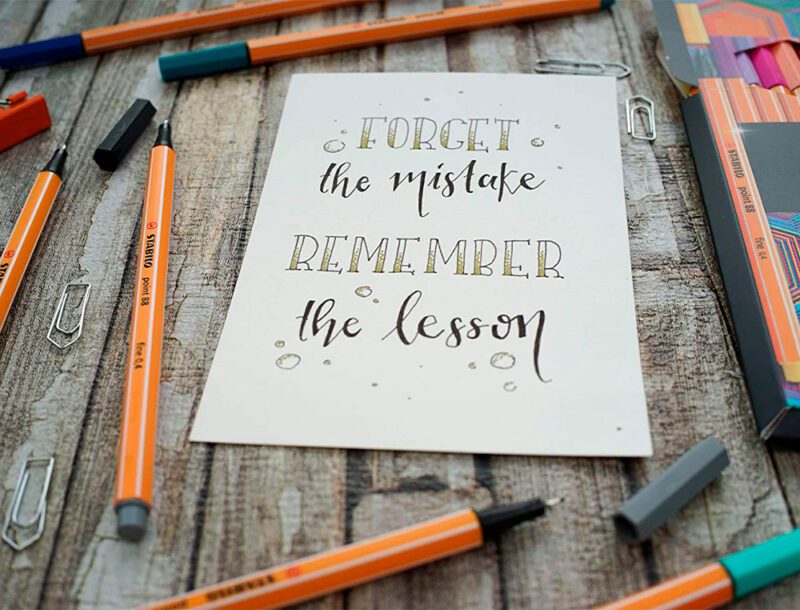 FORGET
the mistake
REMEMBER
the lesson
STABILO point 88 fine 0.4
STABILO point 88 fine 0.4
STABILO